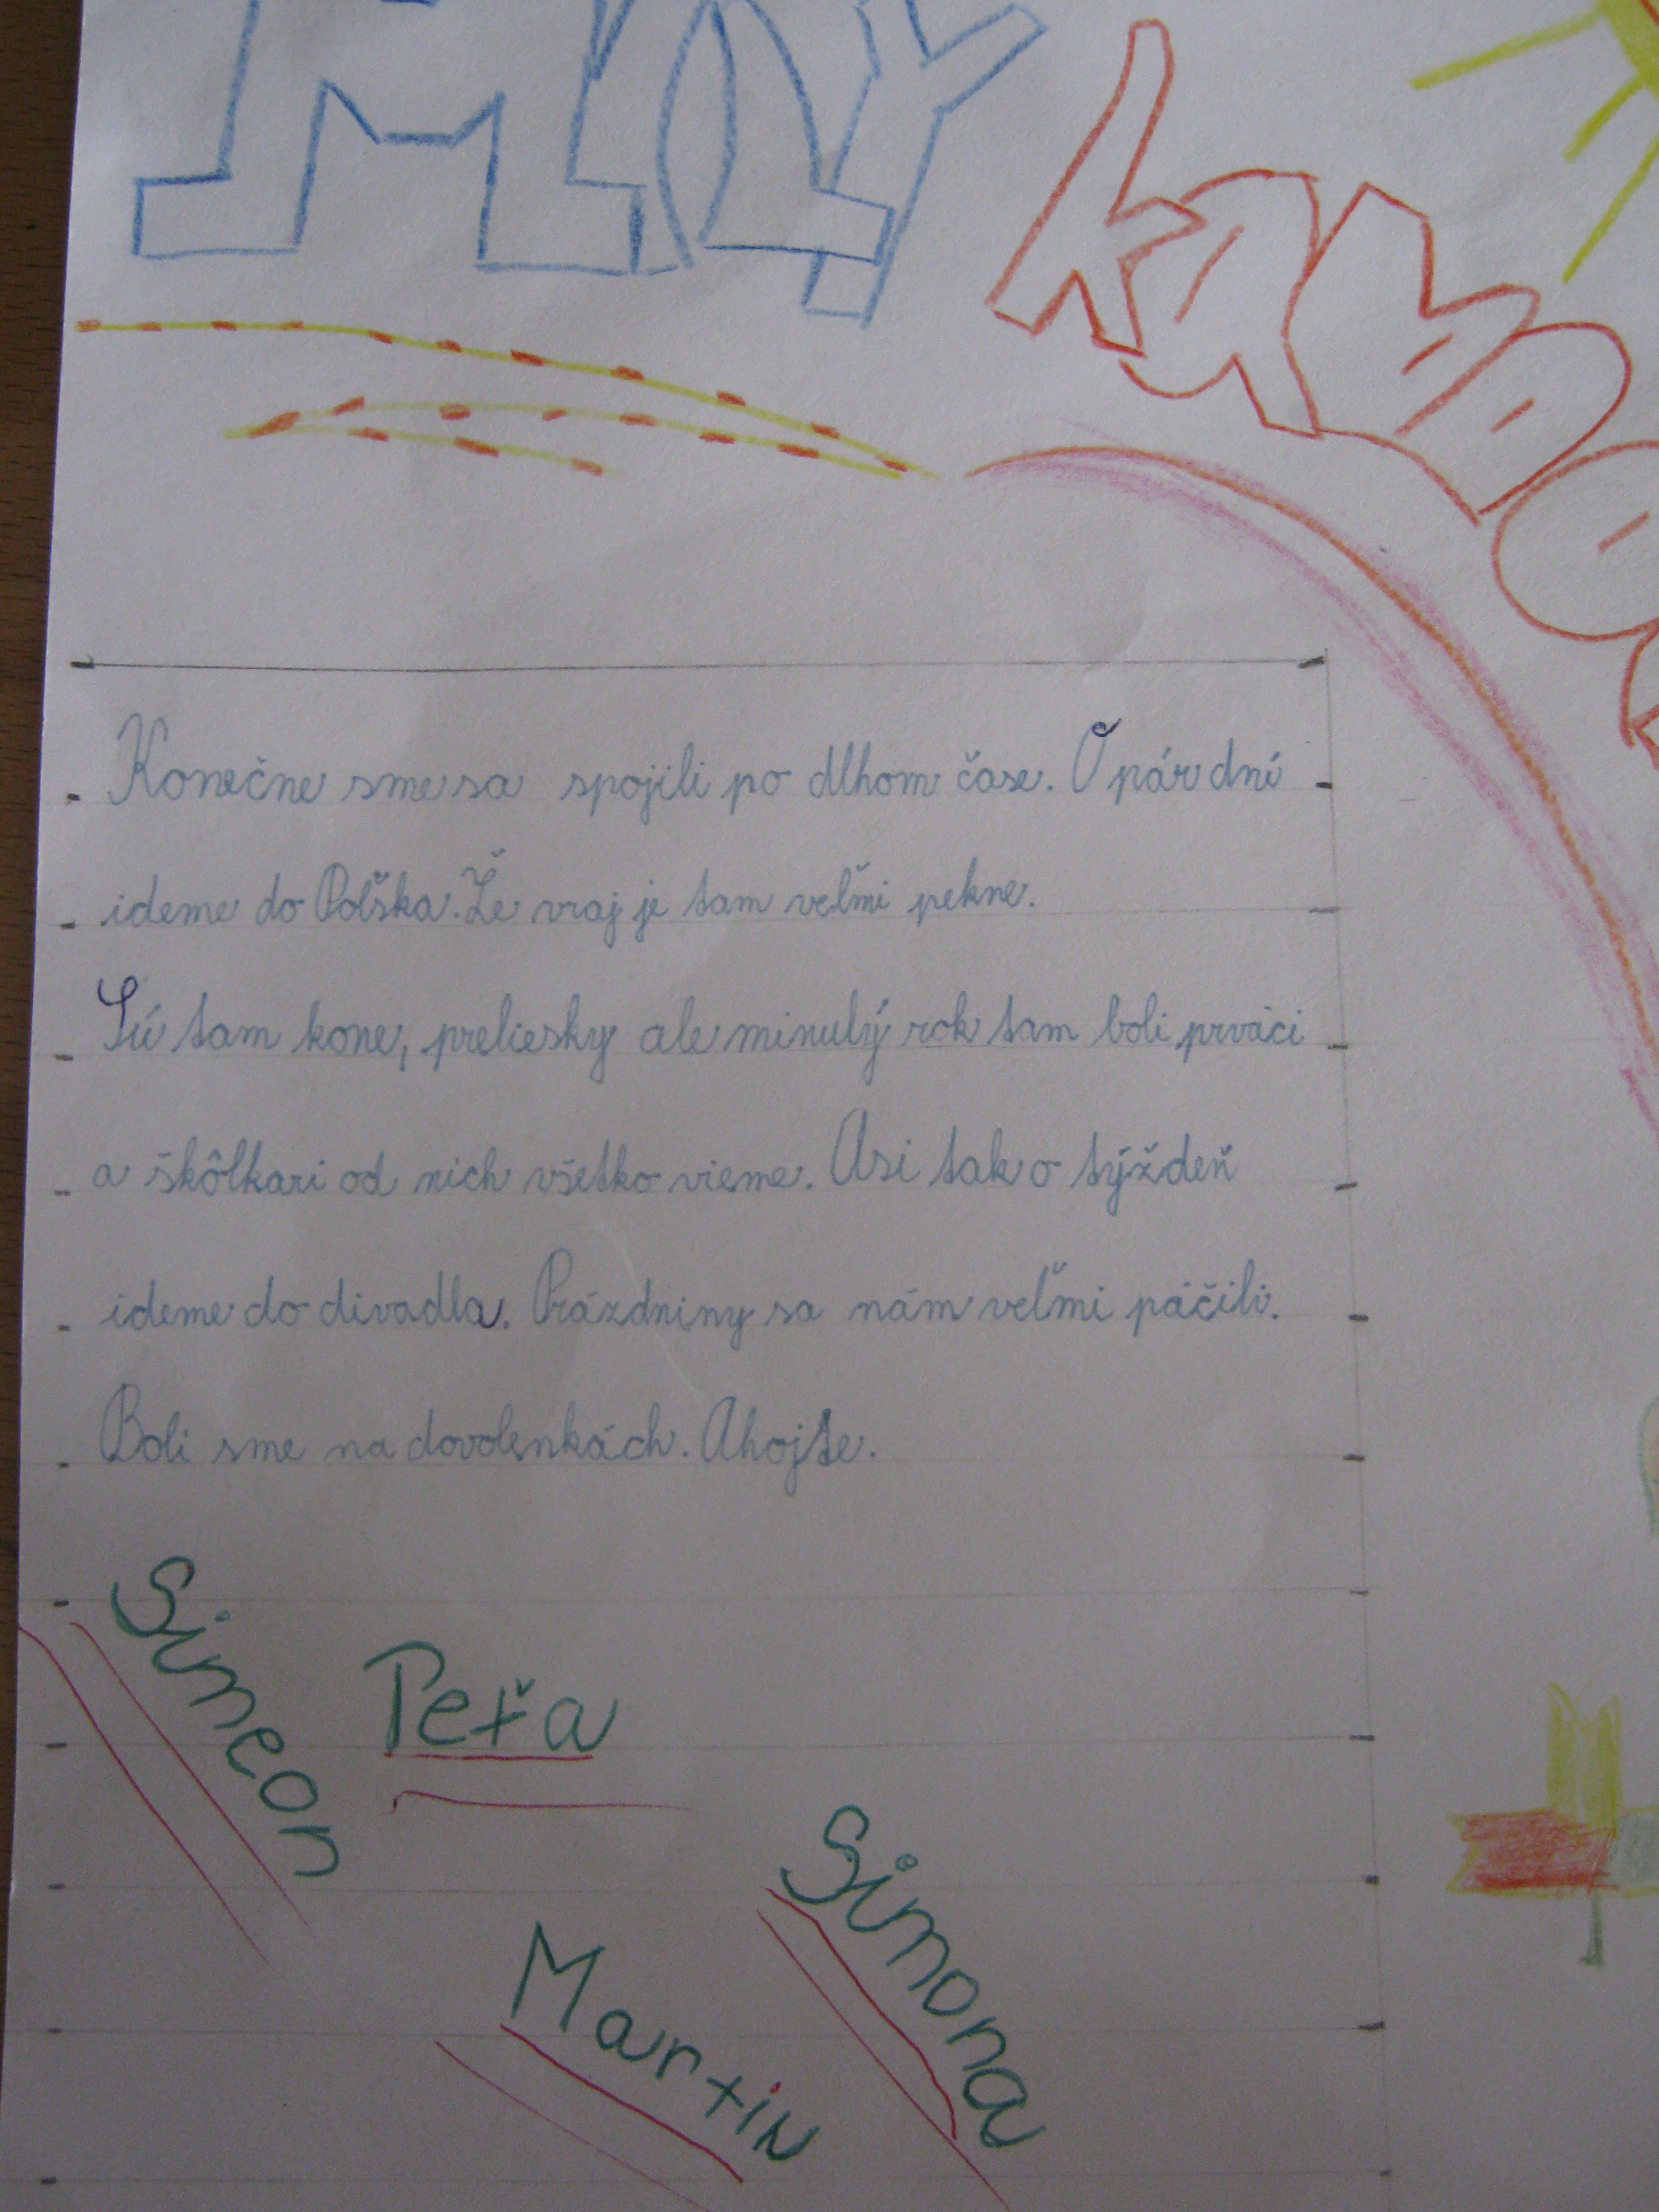 Konečne sme sa spojili po dlhom čase. O pár dní
ideme do Poľska. Že vraj je tam veľmi pekne.
Sú tam kone, preliesky ale minulý rok tam boli prváci
a škôlkari od nich všetko vieme. Asi tak o týždeň
ideme do divadla. Prázdniny sa nám veľmi páčili.
Boli sme na dovolenkách. Ahojte.
Simeon
Peťa
Simona
Martin